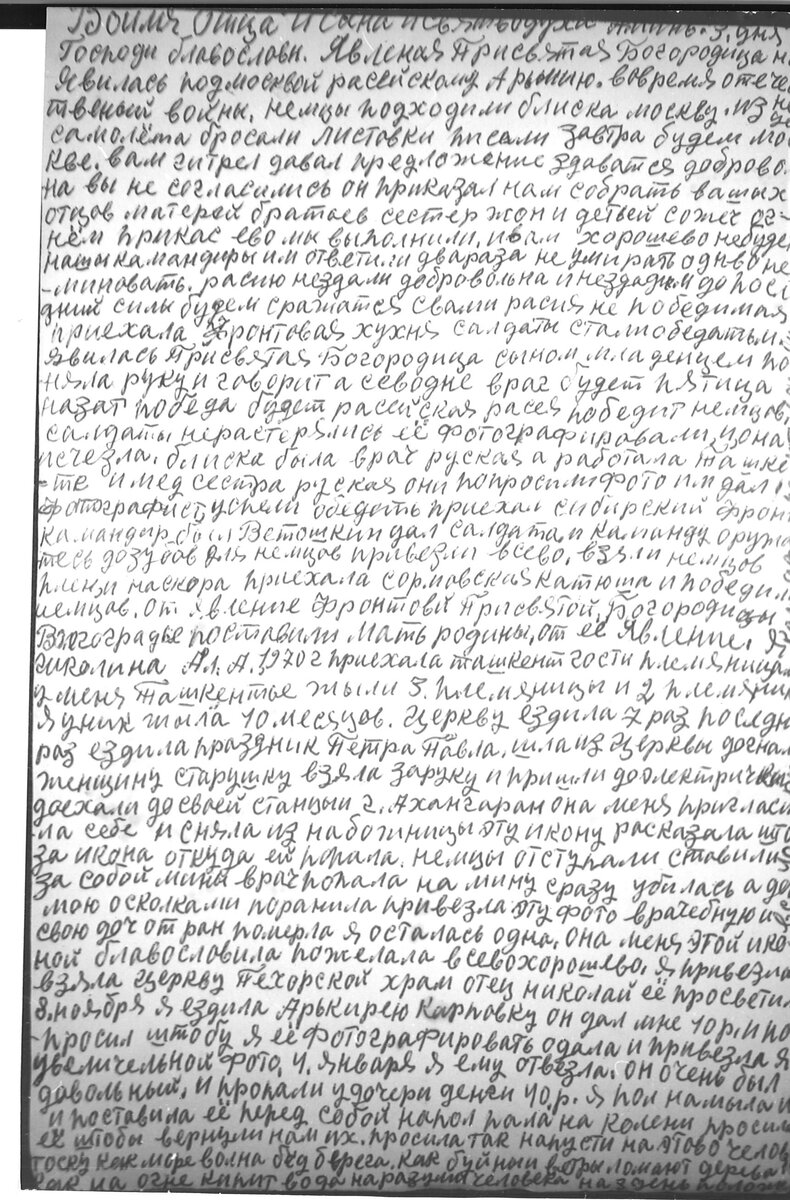 Воимя Отца И Сана И святьводуха Аминь. 3. дня
Господи благослови. Явленая Присвятая Богородица н
явилась подмосквой расейскому Арьмию. вовремя отече
твеный войны. немцы подходили блиска москву. из не
самолёта бросали листовки писали завтра будем мос
кве. вам гитрел давал предложение здаватся доброво
на вы не согласились он приказал нам собрать вашых
отцов матерей братоев сестер жон и детьей сожеч ог-
нём прикас ево мы выполнили, и вам хорошево небуде
нашы камандиры им ответили двараза не умирать одново не
-миновать. расию нездали добровольна и нездадим до посл
дний силы будем сражатся свами расия не победимая
приехала Фронтовая кухня салдаты стали обедатьи
явилась Присвятая Богородица сыном младенцем по
няла руку и говорит а севодне враг будет пятица
назат победа будет расейская расея победит немцов,
салдаты нерастерялись её фотографировали, и она
исчезла. блиска была врач руская а работала Ташке
-те и мед сестра руская они попросили фото им дал
фотографист успели обедать приехал сибирский фрон
камандир был Ветошкин дал салдатам каманду оружа
тесь дозубов для немцов привезли всево. взяли немцов
плени наскора приехала сормовская катюша и победили
немцов. от явление Фронтовй Присвятой Богородицы
Взгоградье поставили Мать родины, от её явление. Я
Николина Ал. А. 1970 г приехала ташкент гости племяници
у меня Ташкентье жыли 3. племяницы и 2 племяник
Я уних жыла 10 месяцов. Церкву ездила 7 раз последн
раз ездила праздник Петра Павла. шла из Церквы догнал
женщину старушку взяла заруку и пришли доэлектрички
доехали до своей станцыи г. Ахангаран она меня пригласи
-ла себе и сняла из набогиницы эту икону расказала што
за икона откуда ей попала. немцы отступали ставили
за собой мины врач попала на мину сразу убилась а доч
мою осколками поранила привезла эту фото врачебную и
свою доч от ран померла я осталась одна, она меня этой ико
ной благословила пожелала всевохорошево. я привезла
взяла Церкву Пехорской храм отец николай её просвети
8. ноября я ездила Арькирею Карповку он дал мне 40 р. и по
-просил штобу я её фотографировать одала и привезла я
увеличельной фото, 4. января я ему отвезла. он очень был
довольный, и пропали у дочери денги 40 р. я пол намыла и
и поставила её перед собой напол пала на колени просила
её штобы вернули нам их. просила так напусти на этово челов
тоску как море волна бед берега, как буйныи ветры ломают дерева
как на огне кипит вода наразуми человека